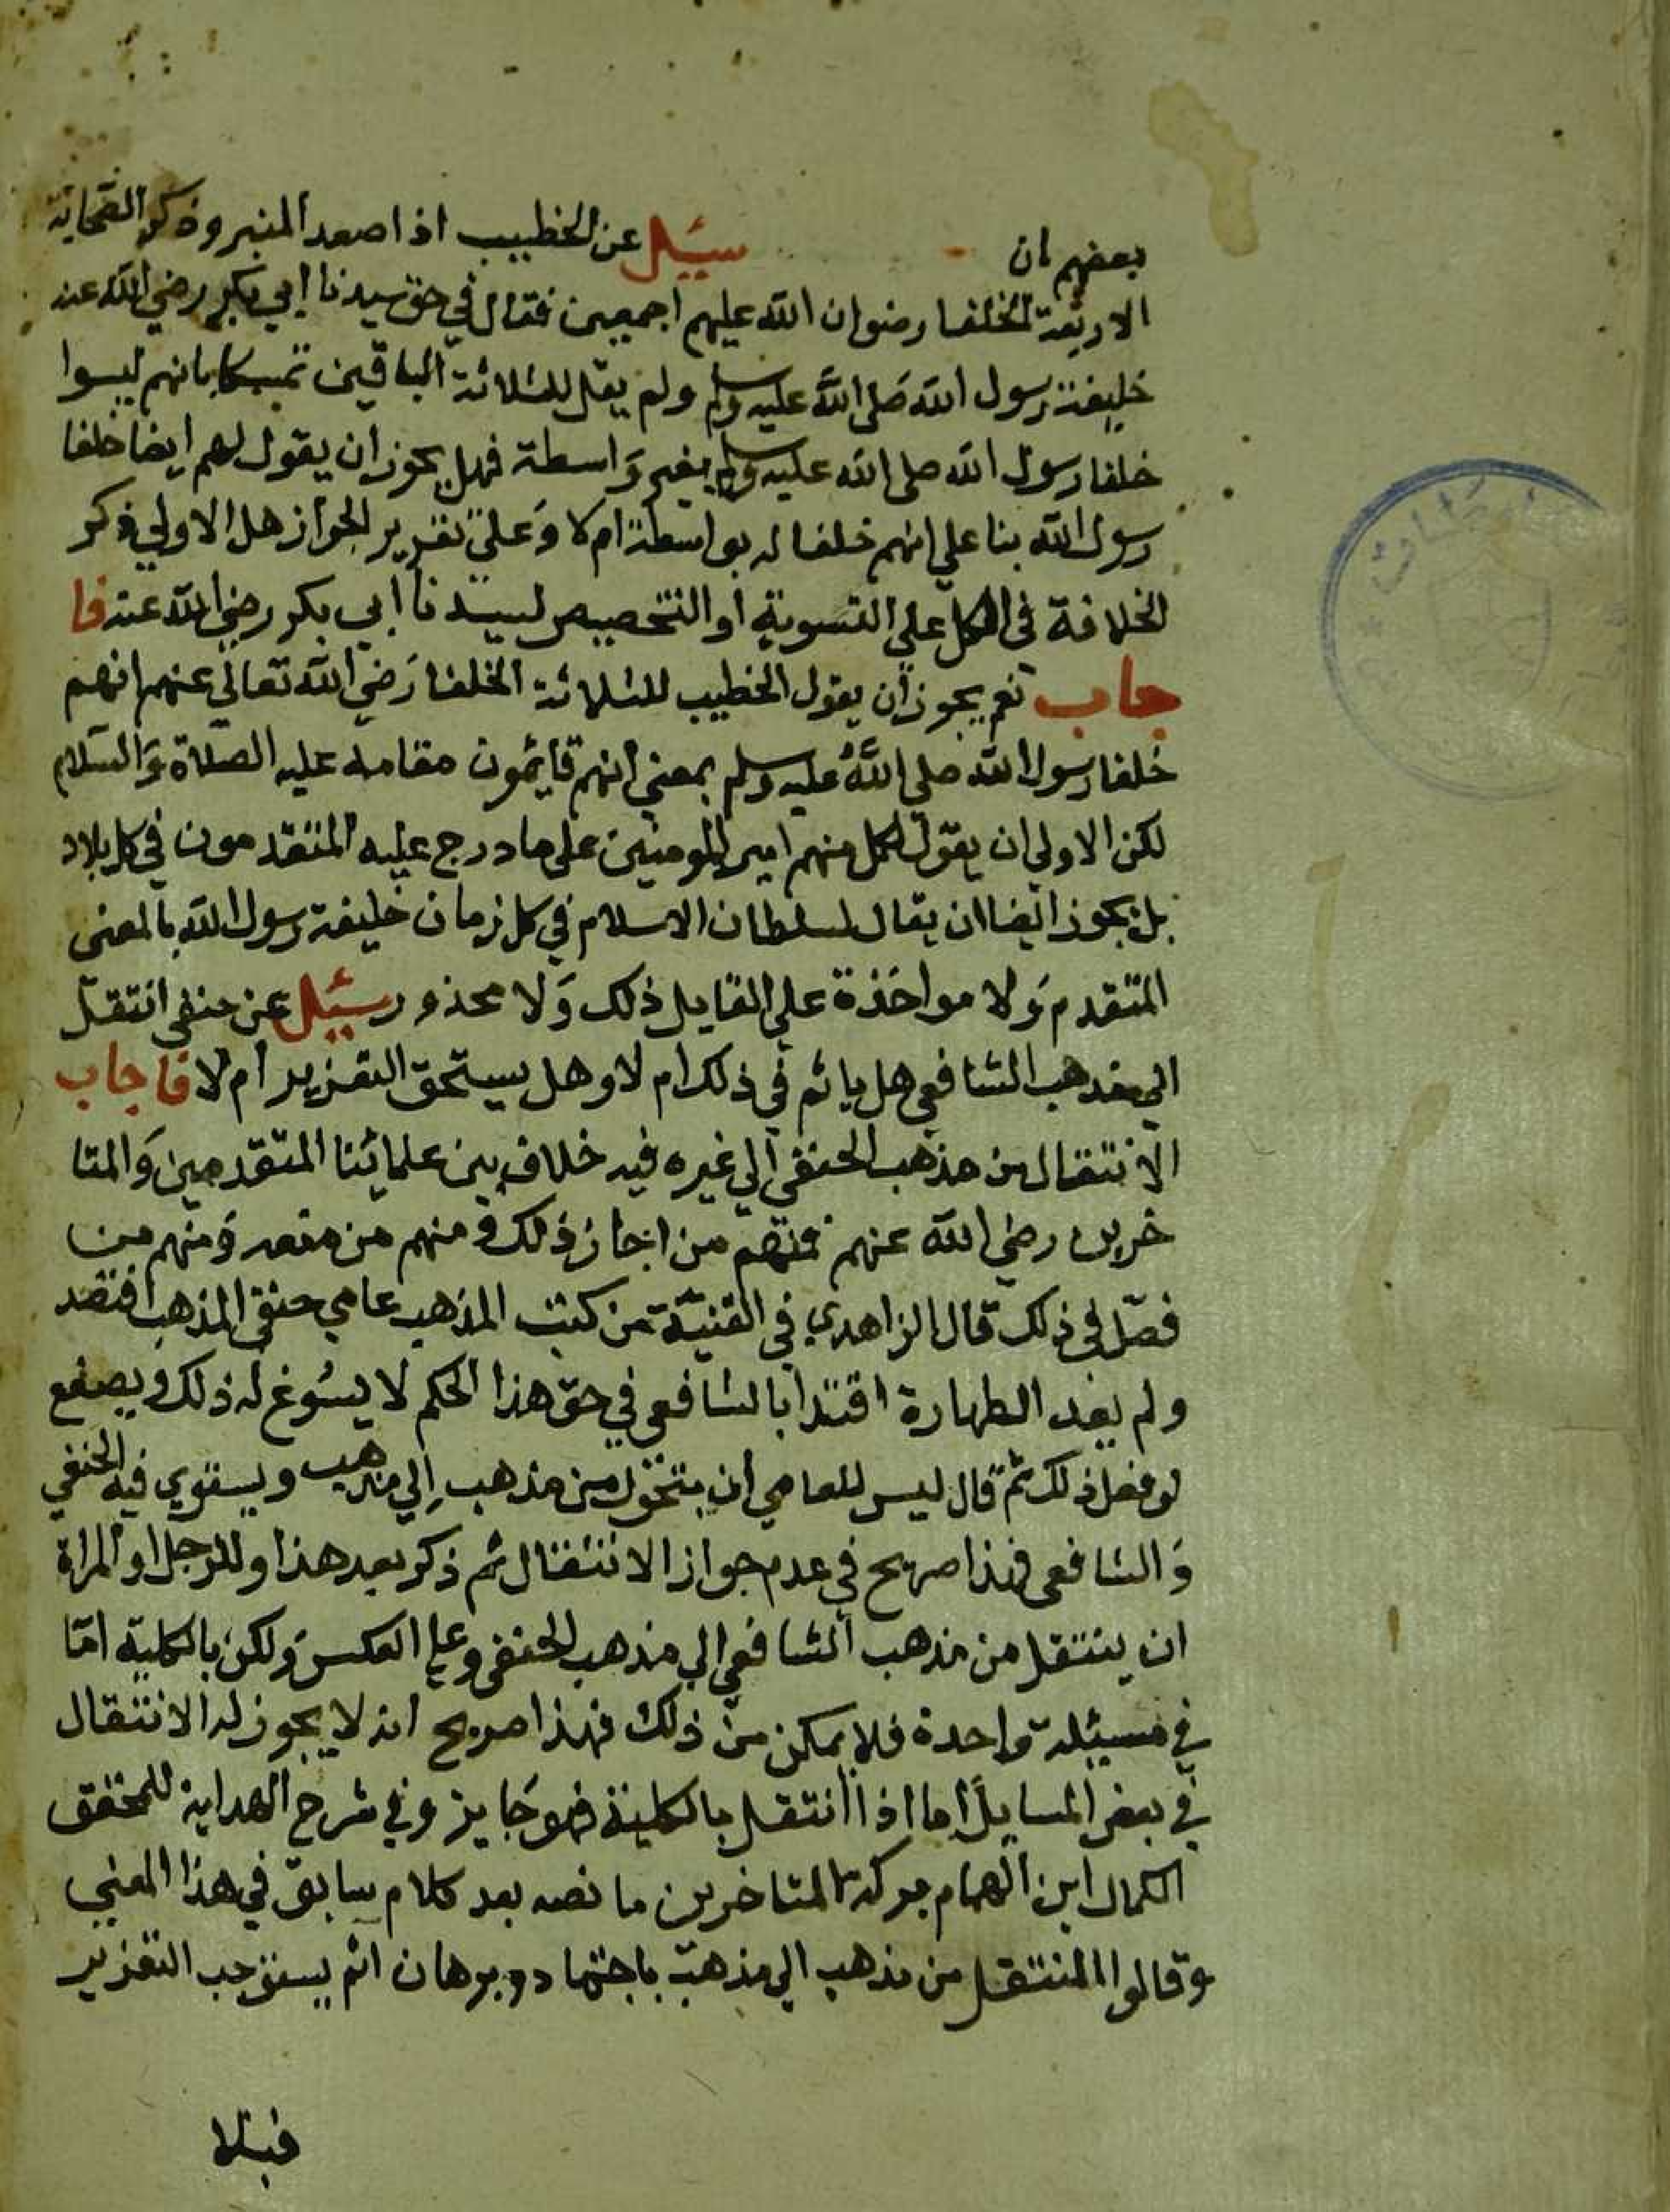 بعضهم ان سيئل عن الخطيب اذا صعد المنبر وذكر الصحابة
الاربعة الخلفا رضوان الله عليهم اجمعين فقال في حق سيدنا ابي بكر رضي الله عنه
خليفة رسول الله صَلى اللهَّ عليه وسلم ولم يقل للثلاثة الباقين تمسكا بانهم ليسوا
خلفا رسول الله صلى الله عليه وسلم بغير وَاسطة فهل يجوز ان يقول لهم ايضا خلفا
رسول الله بنا علي انهم خلفا له بواسطة ام لا وَعلي تقدير الجواز هل الاولي ذكر
الخلافة في الكل علي التسوية أو التخصيص لسيدنا ابي بكر رضي الله عنه فا
جاب نعم يجوز أن يقول الخطيب للثلاثة الخلفا رَضي الله تعالى عنهم انهم
خلفا رسول الله صلى اللهَُّ عليه وسلم بمعني انهم قايمون مقامه عليه الصلاة وَالسلام
لكن الاولي ان يقول لكل منهم امير المومنين على ما درج عليه المتقدمون في كل بلاد
بل يجوز ايضا ان يقال لسلطان الاسلام في كل زمان خليفة رسول الله بالمعنى
المتقدم وَلا مواخَذة علي القايل ذلك وَلا محذور سيئل عن حنفي انتقل
الي مذهب الشافعي هل ياثم في ذلك ام لا وهل يستحق التعزير أم لا فاجاب
الانتقال من مذهب الحنفي الي غيره فيه خلاف بين علمائنا المتقدمين وَالمتا
خرين رضي الله عنهم فمنهم من اجاز ذلك ومنهم من منعه وَمنهم من
فصّل في ذلك قال الزاهدي في القنيّة من كتب المذهب عامي حنفي المذهب افتصد
ولم يعد الطهارة اقتدا بالشافعي في حق هذا الحكم لا يسُوغ له ذلك ويصفع
لو فعل ذلك ثم قال ليس للعامي أن يتحّول من مذهب إلي مذهب ويستوي فيه الحنفي
وَالشافعي فهذا صريح في عدم جواز الانتقال ثم ذكر بعد هذا وللرجل او المراة
ان ينتقل من مذهب الشافعي الي مذهب الحنفي وعلى العكس وَلكن بالكلية امّا
في مسيئلة واحدة فلا يمكن من ذلك فهذا صريح انه لا يجوز له الانتقال
في بعض المسايل أما اذا انتقل بالكلية فهو جَايز وفي شرح الهداية للمحقق
الكمال ابن الهمام بركة المتاخرين ما نصه بعد كلام سابق في هذا المعني
وقالوا المنتقل من مذهب الي مذهب باجتهاد وبرهان اثم يستوجب التعزير
فبلا